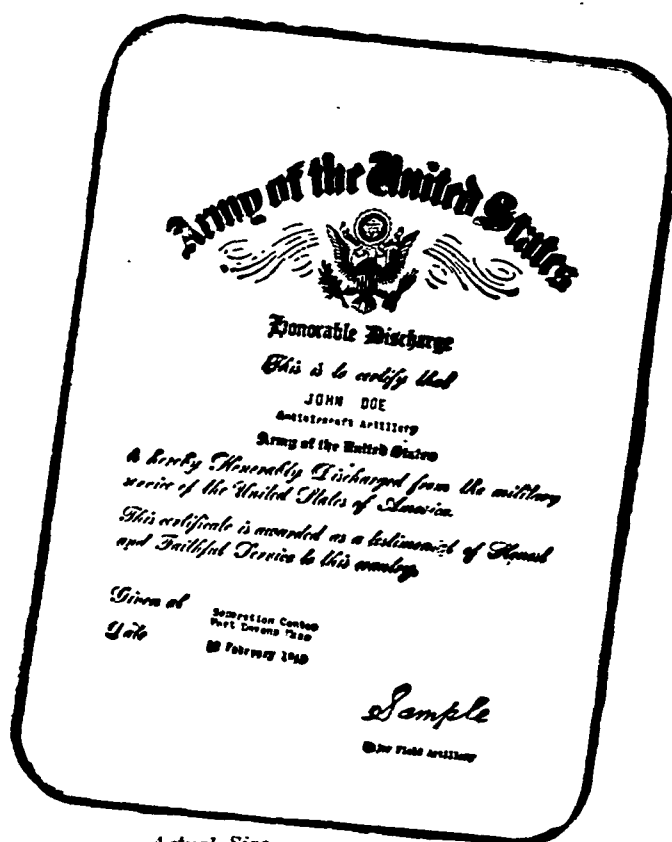 Army of the United States
Honorable Discharge
This is to certify that
JOHN DOE
Antiaircraft Artillery
Army of the United States
is hereby Honorably Discharged from the military
service of the United States of America.
This certificate is awarded as a testimonial of Honest
and Faithful Service to this country.
Given at Separation Center
Fort Devens Mass
Date February
Sample
Major Field Artillery
Actual Size